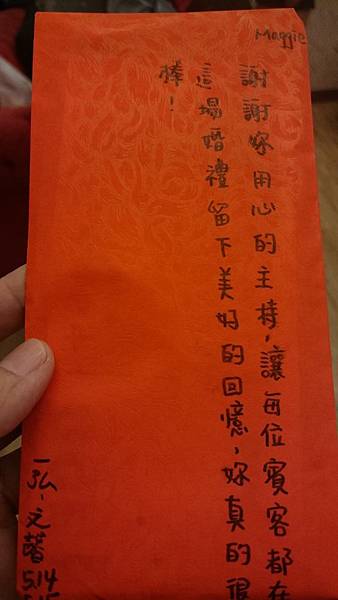 Maggie
謝謝妳用心的主持，讓每位賓客都在
這場婚禮留下美好的回憶，妳真的很
棒！
一弘、文馨
5.14